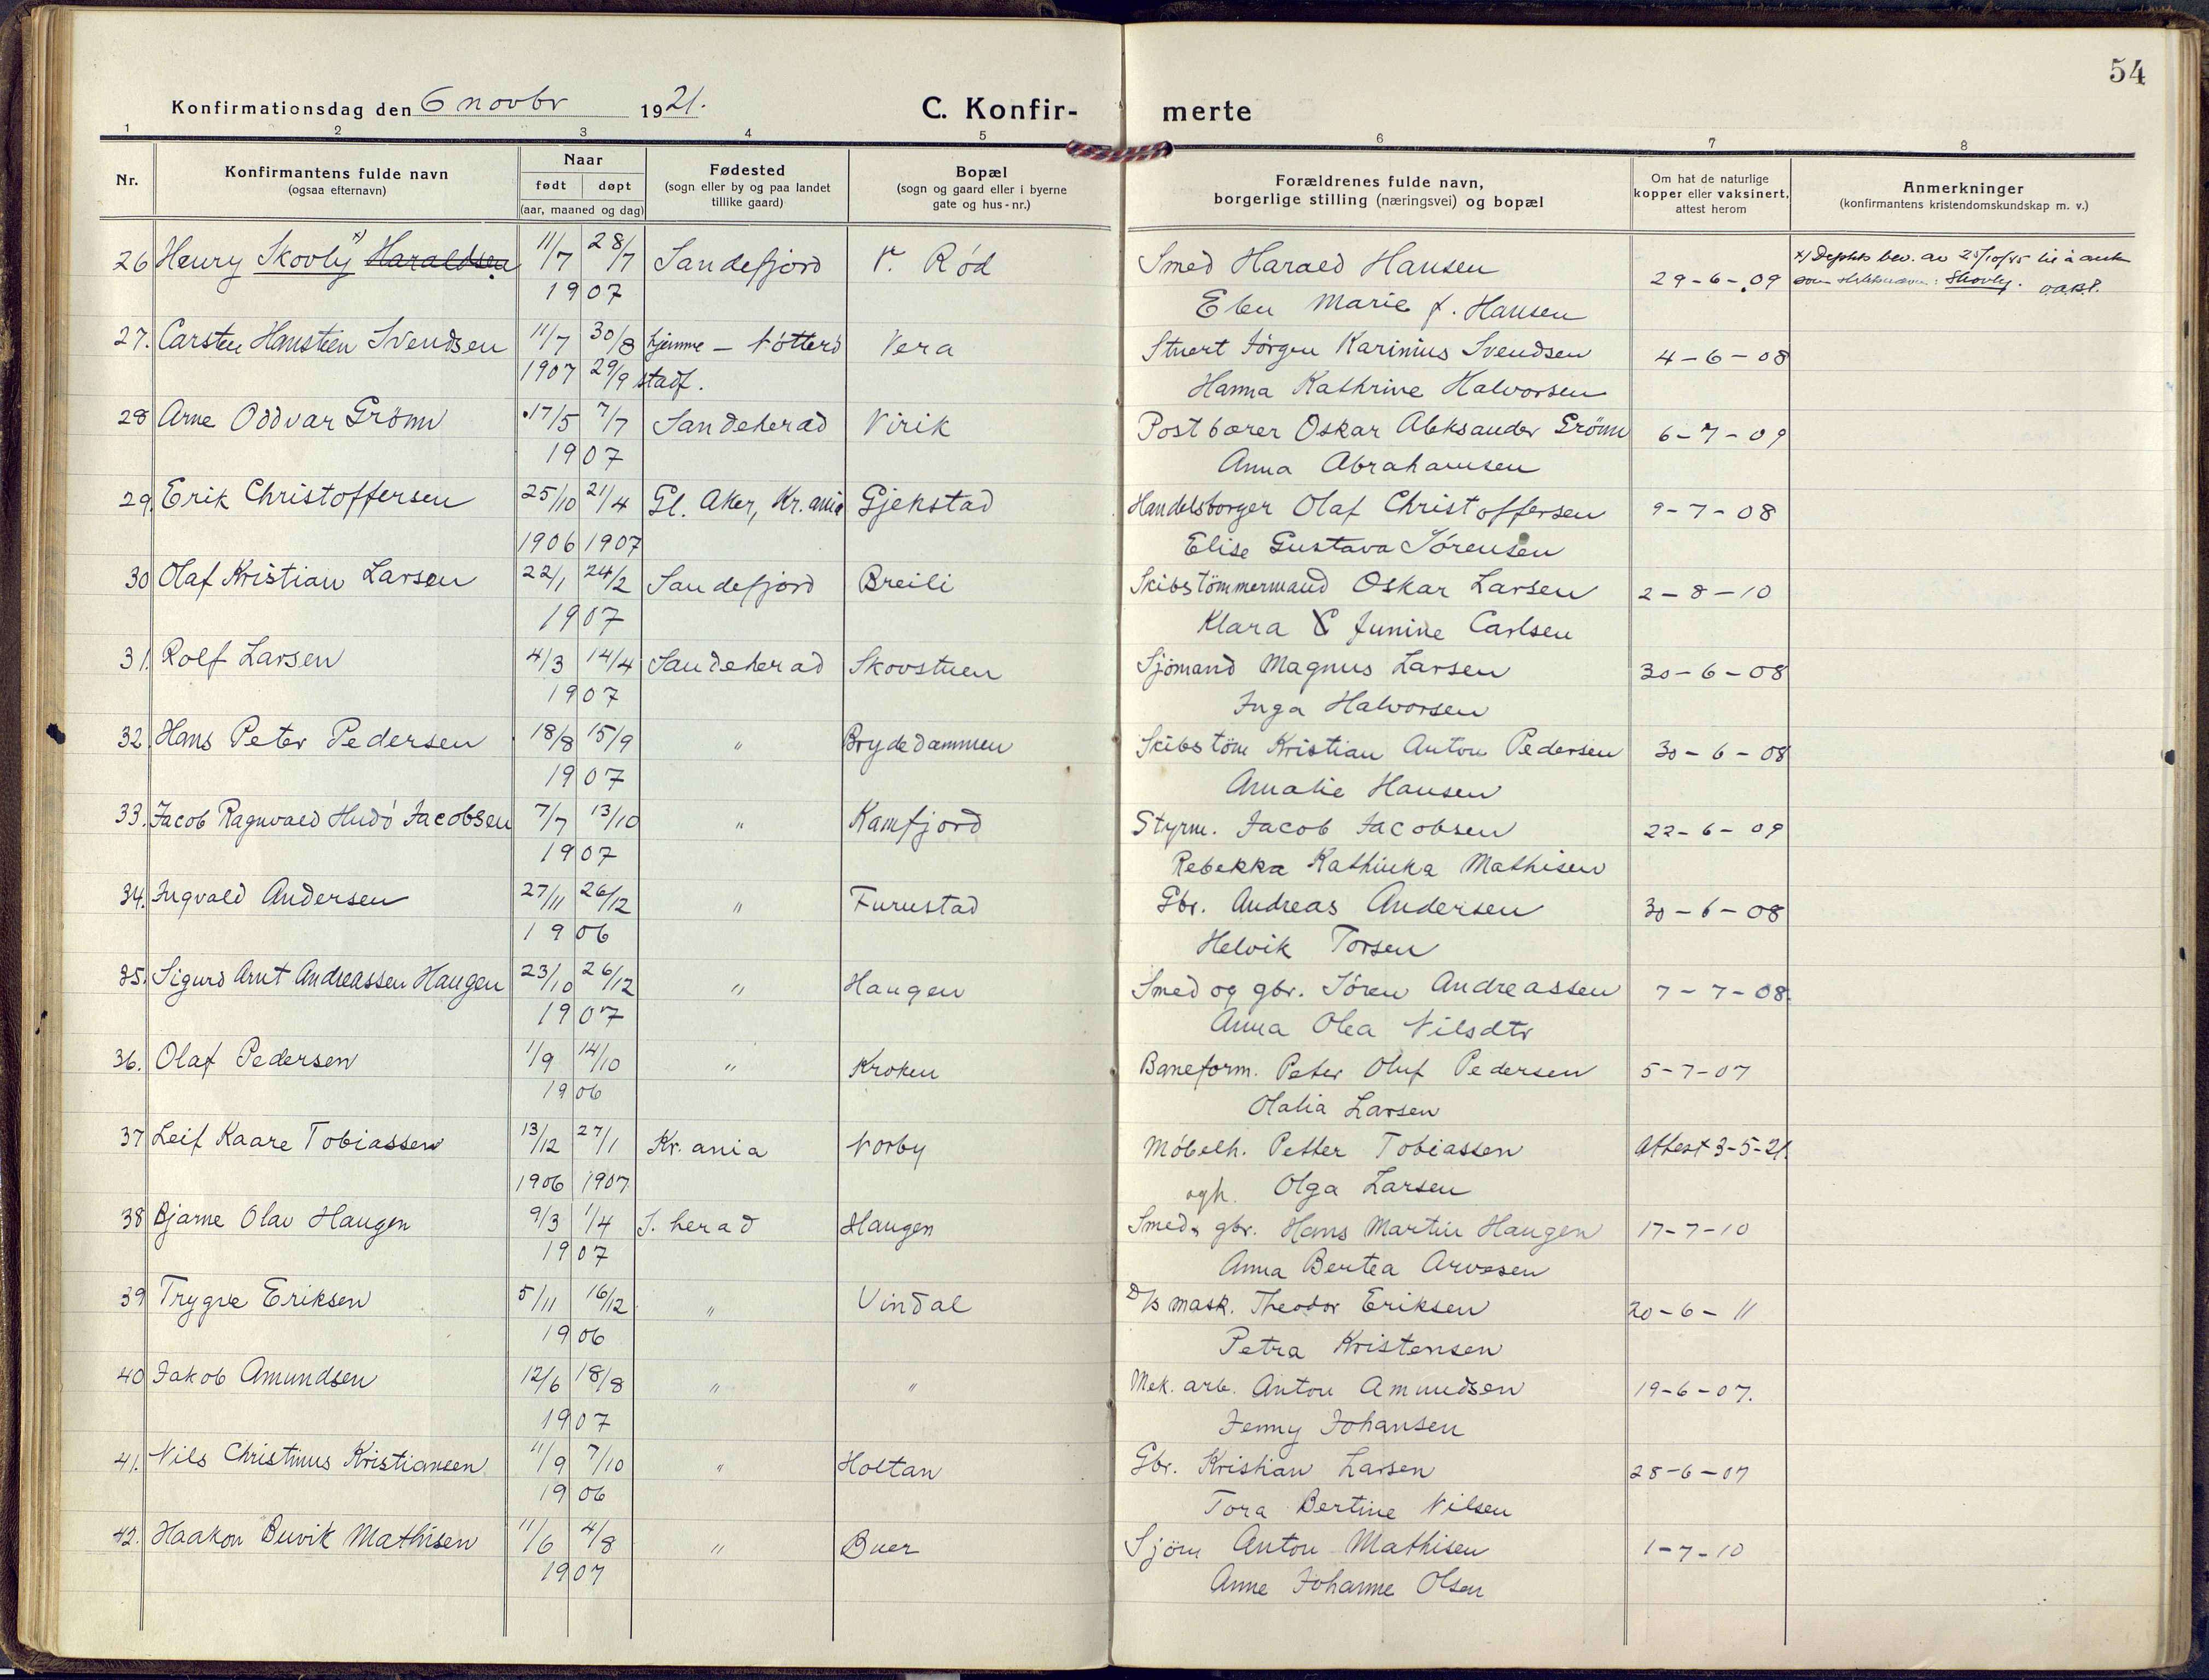 54
Konfirmationsdag den 6 novbr 1921.
C. Konfir- merte
1 2 3 4 5 6 7 8
Nr.
Konfirmantens fulde navn
(ogsaa efternavn)
Naar
født døpt
(aar, maaned og dag)
Fødested
(sogn eller by og paa landet
tillike gaard)
Bopæl
(sogn og gaard eller i byerne
gate og hus-nr.)
Forældrenes fulde navn,
borgerlige stilling (næringsvei) og bopæl
Om hat de naturlige
kopper eller vaksinert,
attest herom
Anmerkninger
(konfirmantens kristendomskundskap m. v.)
26 Henry Skovly x) Haraldsen 11/7 28/7 Sandefjord V. Rød Smed Harald Hansen 29-6-09 x) Depts bev. av 25/10/45 til å
1907 Marie f. Hansen som slektsnavn: Skovly.
27. Carsten Hansteen Svendsen 11/7 30/8 hjemme - Nøtterö Vera Stuert Jörgen Karinius Svendsen 4-6-08
1907 29/9 stadf. Hanna Kathrine Halvorsen
28 Arne Oddvar Grönn 17/5 7/7 Sandeherad Virik Postbærer Oskar Aleksander Grönn 6-7-09
1907 Anna Abrahamsen
29. Erik Christoffersen 25/10 21/4 Gl. Aker, Kr.ania Gjekstad Handelsborger Olaf Christoffersen 9-7-08
1906 1907 Elise Gustava Sörensen
30 Olaf Kristian Larsen 22/1 24/2 Sandefjord Breili Skibstömmermand Oskar Larsen 2-8-10
1907 Klara Junine Carlsen
31. Rolf Larsen 4/3 14/4 Sandeherad Skovstuen Sjömand Magnus Larsen 30-6-08
1907 Inga Halvorsen
32. Hans Peter Pedersen 18/8 15/9 " Brydedammen Skibstöm Kristian Anton Pedersen 30-6-08
1907 Amalie Hansen
33. Jacob Ragnvald Hudö Jacobsen 7/7 13/10 " Kamfjord Styrm. Jacob Jacobsen 22-6-09
1907 Rebekka Kathinka Mathisen
34. Ingvald Andersen 27/11 26/12 " Furustad Gbr. Andreas Andersen 30-6-08
1906 Helvik Torsen
35. Sigurd Arnt Andreassen Haugen 23/10 26/12 " Haugen Smed og gbr. Sören Andreassen 7-7-08.
1907 Anna Olea Nilsdtr
36. Olaf Pedersen 1/9 14/10 " Kroken Baneform. Peter Oluf Pedersen 5-7-07
1906 Olalia Larsen
37 Leif Kaare Tobiassen 13/12 27/1 Kr.ania Norby Möbelh. Petter Tobiassen Attest 3-5-21.
1906 1907 Olga Larsen
38 Bjarne Olav Haugen 9/3 1/4 S. herad Haugen Smed og gbr. Hans Martin Haugen 17-7-10
1907 Anna Bertea Arvesen
39 Trygve Eriksen 5/11 16/12 " Vindal D/s mask. Theodor Eriksen 20-6-11
1906 Petra Kristensen
40 Jakob Amundsen 12/6 18/8 " " Mek. arb. Anton Amundsen 19-6-07.
1907 Jenny Johansen
41. Nils Christinus Kristiansen 11/9 7/10 " Holtan Gbr. Kristian Larsen 28-6-07
1906 Tora Bertine Nilsen
42. Haakon Buvik Mathisen 11/6 4/8 " Buer Sjöm Anton Mathisen 1-7-10
1907 Anne Johanne Olsen